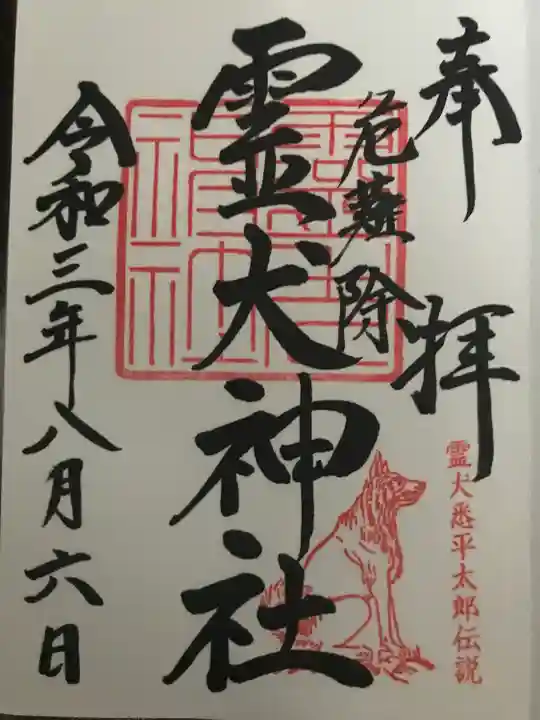 奉拝
危難除
霊犬神社
令和三年八月六日
霊犬悉平太郎伝説